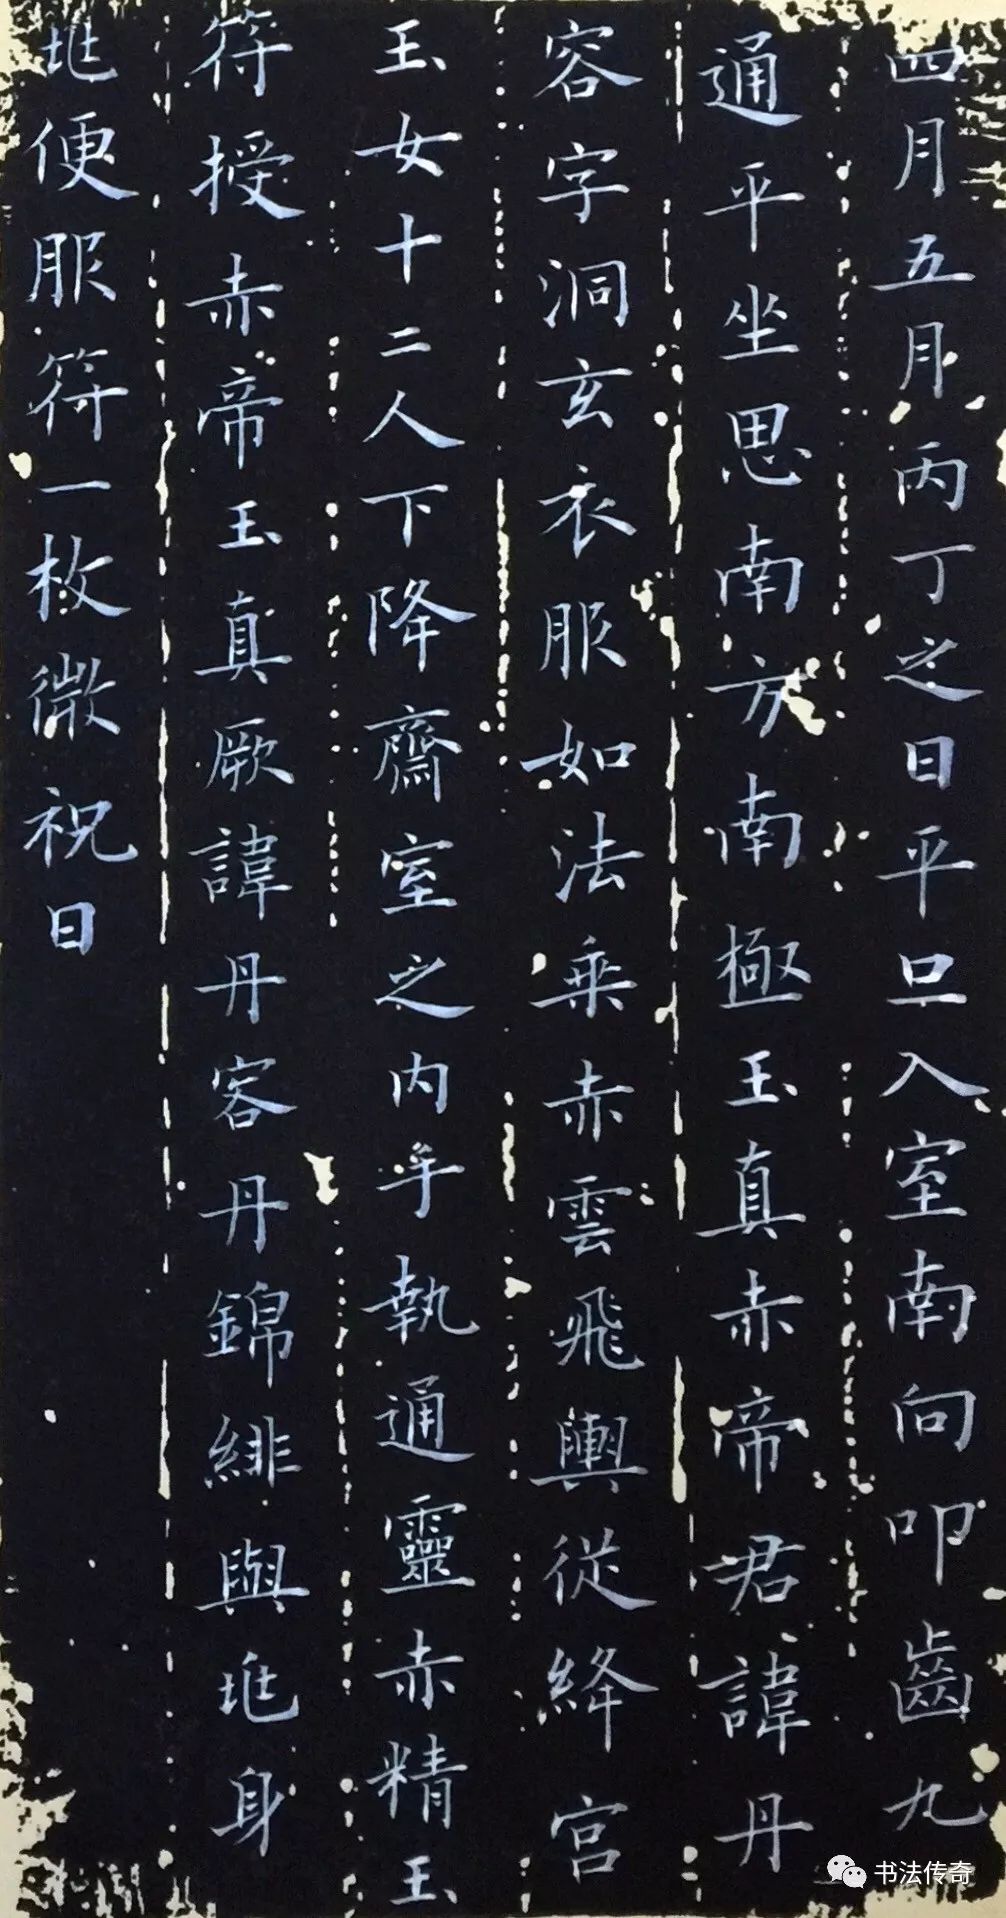 四月五月丙丁之日平旦入室南向叩齒九
通平坐思南方南極玉真赤帝君諱丹
容字洞玄衣服如法乘赤雲飛輿從絳宮
玉女十二人下降齋室之内手執通靈赤精玉
符授赤帝玉真厥諱丹容丹錦緋與地身
地便服符一枚微祝曰
书法传奇